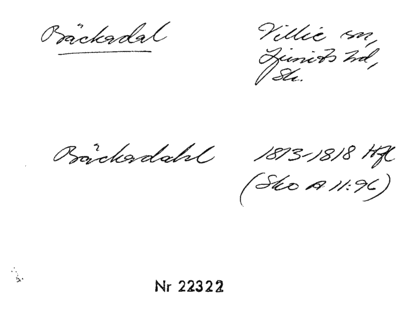 Bäckadal Villie sn,
Ljunits hd,
Sk.
Bäckadahl 1813-1818 Hfl
(Sko A II:96)
Nr 22322